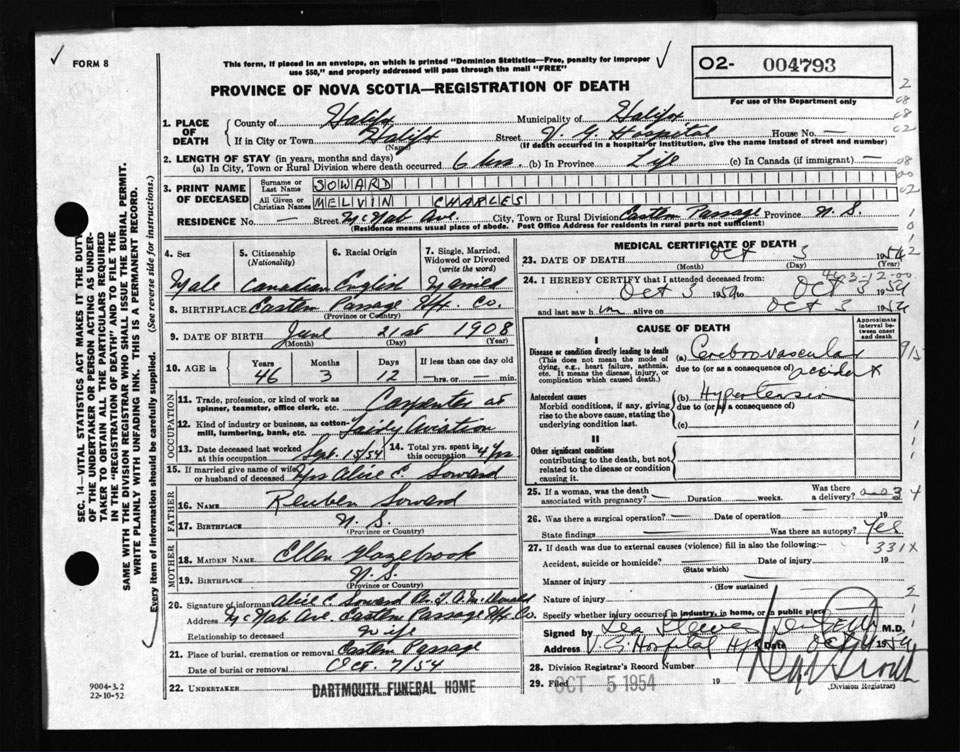 FORM 8
This form, if placed in an envelope, on which is printed "Dominion Statistics—Free, penalty for improper
use $50," and properly addressed will pass through the mail "FREE"
O2- 004793
For use of the Department only
PROVINCE OF NOVA SCOTIA—REGISTRATION OF DEATH
1. PLACE OF DEATH
County of Halifx Municipality of Halifx
If in City or Town Halifx Street V. G. Hospital House No. —
(Name) (If death occurred in a hospital or institution, give the name instead of street and number)
2. LENGTH OF STAY (in years, months and days)
(a) In City, Town or Rural Division where death occurred 6 hrs. (b) In Province Life (c) In Canada (if immigrant) —
3. PRINT NAME OF DECEASED
Surname or Last Name SOWARD
All Given or Christian Names MELVIN CHARLES
RESIDENCE No. — Street McNab Ave. City, Town or Rural Division Eastern Passage Province N. S.
(Residence means usual place of abode. Post Office Address for residents in rural parts not sufficient)
4. Sex
5. Citizenship (Nationality)
6. Racial Origin
7. Single, Married, Widowed or Divorced (write the word)
Male Canadian English Married
8. BIRTHPLACE Eastern Passage Hfx. Co.
(Province or Country)
9. DATE OF BIRTH June 21st 1908
(Month) (Day) (Year)
10. AGE in
Years Months Days If less than one day
46 3 12 hrs. or — min.
OCCUPATION
11. Trade, profession, or kind of work as spinner, teamster, office clerk, etc. Carpenter at
12. Kind of industry or business, as cotton-mill, lumbering, bank, etc. Fairey Aviation
13. Date deceased last worked at this occupation Sept. 15/54
14. Total yrs. spent in this occupation 4 yrs.
15. If married give name of wife or husband of deceased Mrs Alice C. Soward
FATHER
16. NAME Reuben Soward
17. BIRTHPLACE N. S.
(Province or Country)
MOTHER
18. MAIDEN NAME Ellen Glazebrook
19. BIRTHPLACE N. S.
(Province or Country)
20. Signature of informant Alice C. Soward
Address McNab Ave. Eastern Passage Hfx. Co.
Relationship to deceased Wife
21. Place of burial, cremation or removal Eastern Passage
Date of burial or removal Oct. 7/54
22. UNDERTAKER DARTMOUTH FUNERAL HOME
MEDICAL CERTIFICATE OF DEATH
23. DATE OF DEATH Oct 3 1954
(Month) (Day) (Year)
46-3-12-00
24. I HEREBY CERTIFY that I attended deceased from:
Oct 3 1954 to Oct 3 1954
and last saw h im alive on Oct 3 1954
CAUSE OF DEATH
Approximate interval between onset and death
I
Disease or condition directly leading to death
(This does not mean the mode of dying, e.g., heart failure, asthenia, etc. It means the disease, injury, or complication which caused death.)
(a) Cerebrovascular
due to (or as a consequence of) accident
Antecedent causes
Morbid conditions, if any, giving rise to the above cause, stating the underlying condition last.
(b) Hypertension
due to (or as a consequence of)
(c)
II
Other significant conditions
contributing to the death, but not related to the disease or condition causing it.
25. If a woman, was the death associated with pregnancy? — Duration weeks. Was there a delivery?
26. Was there a surgical operation? — Date of operation — 19
State findings — Was there an autopsy? Yes
331X
27. If death was due to external causes (violence) fill in also the following:—
Accident, suicide or homicide? Date of injury 19
(State which)
Manner of injury
(How sustained)
Nature of injury
Specify whether injury occurred in industry, in home, or in public place
Signed by M.D.
Address V. G. Hospital Hfx Date Oct 1954
28. Division Registrar's Record Number
29. Filed OCT 5 1954 19
(Division Registrar)
9004-3.2
22-10-52
SEC. 14—VITAL STATISTICS ACT MAKES IT THE DUTY
OF THE UNDERTAKER OR PERSON ACTING AS UNDER-
TAKER TO OBTAIN ALL THE PARTICULARS REQUIRED
IN THE "REGISTRATION OF DEATH" AND TO FILE THE
SAME WITH THE DIVISION REGISTRAR WHO SHALL ISSUE THE BURIAL PERMIT.
WRITE PLAINLY WITH UNFADING INK. THIS IS A PERMANENT RECORD.
Every item of information should be carefully supplied. (See reverse side for instructions.)